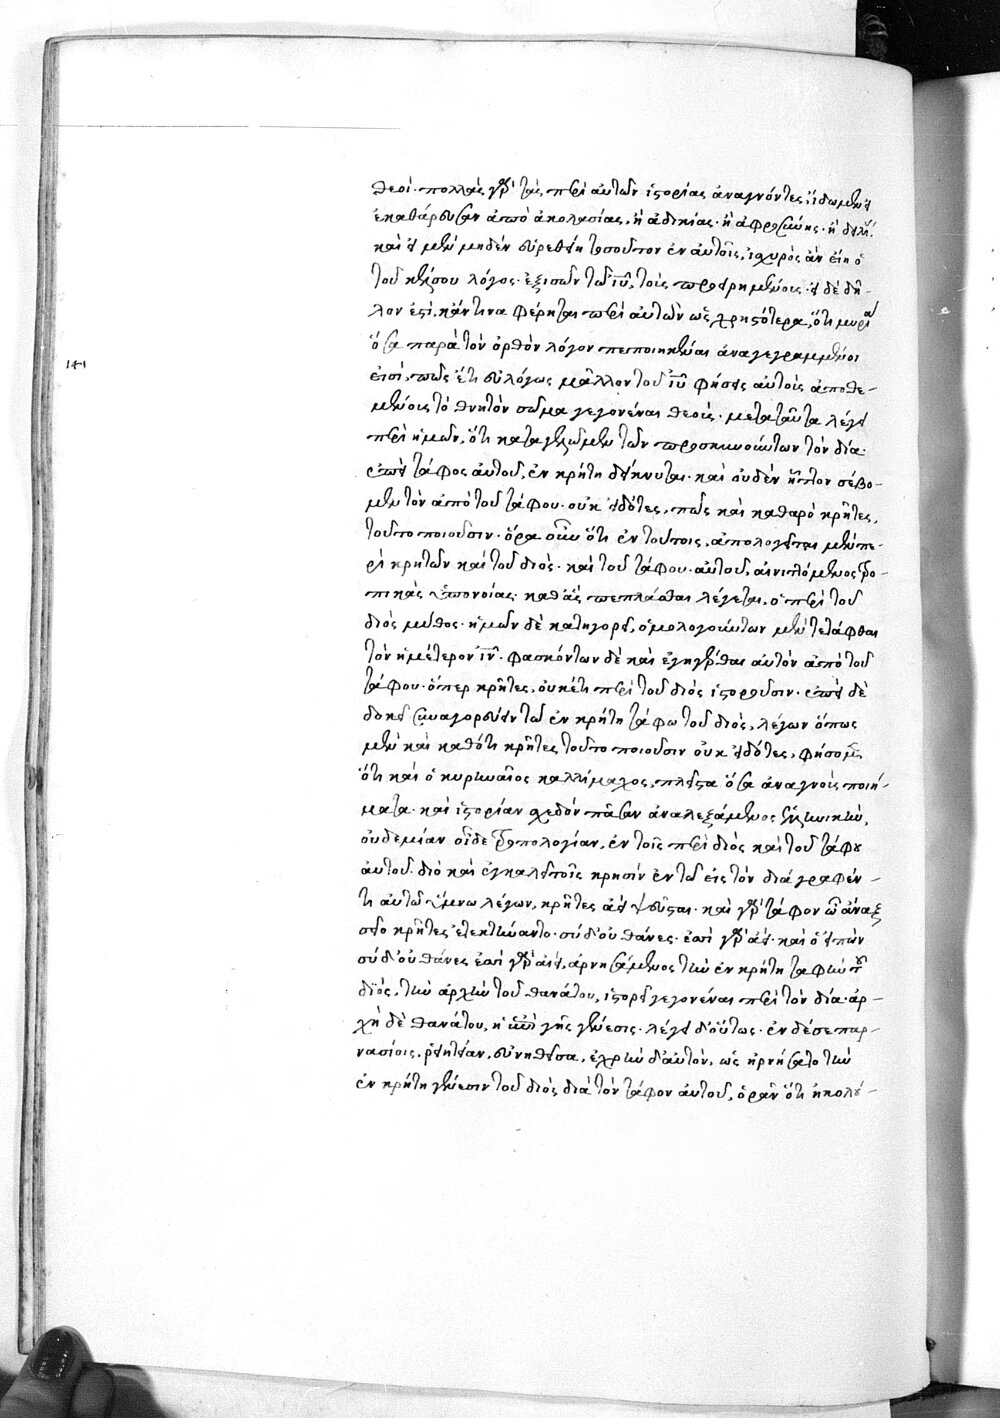 θεοί· πολλὰς γὰρ τὰς περὶ αὐτῶν ἱστορίας ἀναγνόντες, ἴδωμεν εἰ
ἐκαθάρευσαν ἀπὸ ἀκολασίας, ἢ ἀδικίας· ἢ ἀφροσύνης· ἢ δειλί·
καὶ εἰ μὲν μηδὲν εὑρεθείη τοσοῦτον ἐν αὐτοῖς, ἰσχυρὸς ἂν εἴη ὁ
τοῦ κέλσου λόγος· ἐξισῶν τῷ ἰῦ, τοῖς προειρημένοις· εἰ δὲ δῆ-
λον ἐστὶ, κἄν τινα φέρηται περὶ αὐτῶν ὡς χρηστότερα, ὅτι μυρία
ὅσα παρὰ τὸν ὀρθὸν λόγον πεποιηκέναι ἀναγεγραμμένοι
εἰσὶ, πῶς ἔτι εὐλόγως μᾶλλον τοῦ ἰῦ φήσεις αὐτοὺς ἀποθε-
μένους τὸ θνητὸν σῶμα γεγονέναι θεούς· μετὰ ταῦτα λέγει
περὶ ἡμῶν, ὅτι καταγελῶμεν τῶν προσκυνούντων τὸν δία·
ἐπεὶ τάφος αὐτοῦ, ἐν κρήτῃ δείκνυται· καὶ οὐδὲν ἧττον σέβο-
μεν τὸν ἀπὸ τοῦ τάφου· οὐκ εἰδότες, πῶς καὶ καθαρὸ κρῆτες,
τοῦτο ποιοῦσιν· ὅρα οὖν ὅτι ἐν τούτοις, ἀπολογεῖται μὲν πε-
ρὶ κρητῶν καὶ τοῦ διὸς· καὶ τοῦ τάφου αὐτοῦ, αἰνιττόμενος τρο-
πικὰς ὑπονοίας· καθ' ἃς πεπλάσθαι λέγεται, ὁ περὶ τοῦ
διὸς μῦθος· ἡμῶν δὲ κατηγορεῖ, ὁμολογούντων μὲν τετάφθαι
τὸν ἡμέτερον ἰν· φασκόντων δὲ καὶ ἐγηγέρθαι αὐτὸν ἀπὸ τοῦ
τάφου· ὅπερ κρῆτες, οὐκέτι περὶ τοῦ διὸς ἱστοροῦσιν· ἐπεὶ δὲ
δοκεῖ συναγορεύειν τῷ ἐν κρήτῃ τάφῳ τοῦ διὸς, λέγων ὅπως
μὲν καὶ καθότι κρῆτες τοῦτο ποιοῦσιν οὐκ εἰδότες, φήσομεν
ὅτι καὶ ὁ κυρηναῖος καλλίμαχος, πλεῖστα ὅσα ἀναγνοὺς ποιή-
ματα· καὶ ἱστορίαν σχεδὸν πᾶσαν ἀναλεξάμενος ἑλληνικὴν,
οὐδεμίαν οἶδε τροπολογίαν, ἐν τοῖς περὶ διὸς καὶ τοῦ τάφου
αὐτοῦ· διὸ καὶ ἐγκαλεῖ τοῖς κρησὶν ἐν τῷ εἰς τὸν δία γραφέν-
τι αὐτῷ ὕμνῳ λέγων, κρῆτες ἀεὶ ψεῦσται· καὶ γὰρ τάφον ὦ ἄναξ
σεῖο κρῆτες ἐτεκτήναντο· σὺ δ' οὐ θάνες· ἐσσὶ γὰρ ἀεί· καὶ ὁ εἰπὼν
σὺ δ' οὐ θάνες ἐσσὶ γὰρ αἰεὶ, ἀρνησάμενος τὴν ἐν κρήτῃ ταφὴν τοῦ
διὸς, τὴν ἀρχὴν τοῦ θανάτου, ἱστορεῖ γεγονέναι περὶ τὸν δία· ἀρ-
χὴ δὲ θανάτου, ἡ ἐπὶ γῆς γένεσις· λέγει δ' οὕτως· ἐν δέ σε παρ-
νασίοις, ῥείητείαν, εὐνηθεῖσα, ἐχρῆν δ' αὐτὸν, ὡς ἠρνήσατο τὴν
ἐν κρήτῃ γένεσιν τοῦ διὸς διὰ τὸν τάφον αὐτοῦ, ὁρᾶν ὅτι ἠκολού-
141